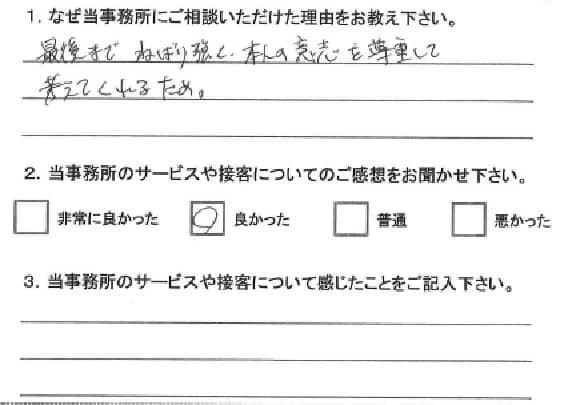 1. なぜ当事務所にご相談いただけた理由をお教え下さい。
最後まで ねばり強く、本人の意志を尊重して
考えてくれるため。
2. 当事務所のサービスや接客についてのご感想をお聞かせ下さい。
非常に良かった 良かった 普通 悪かった
3. 当事務所のサービスや接客について感じたことをご記入下さい。